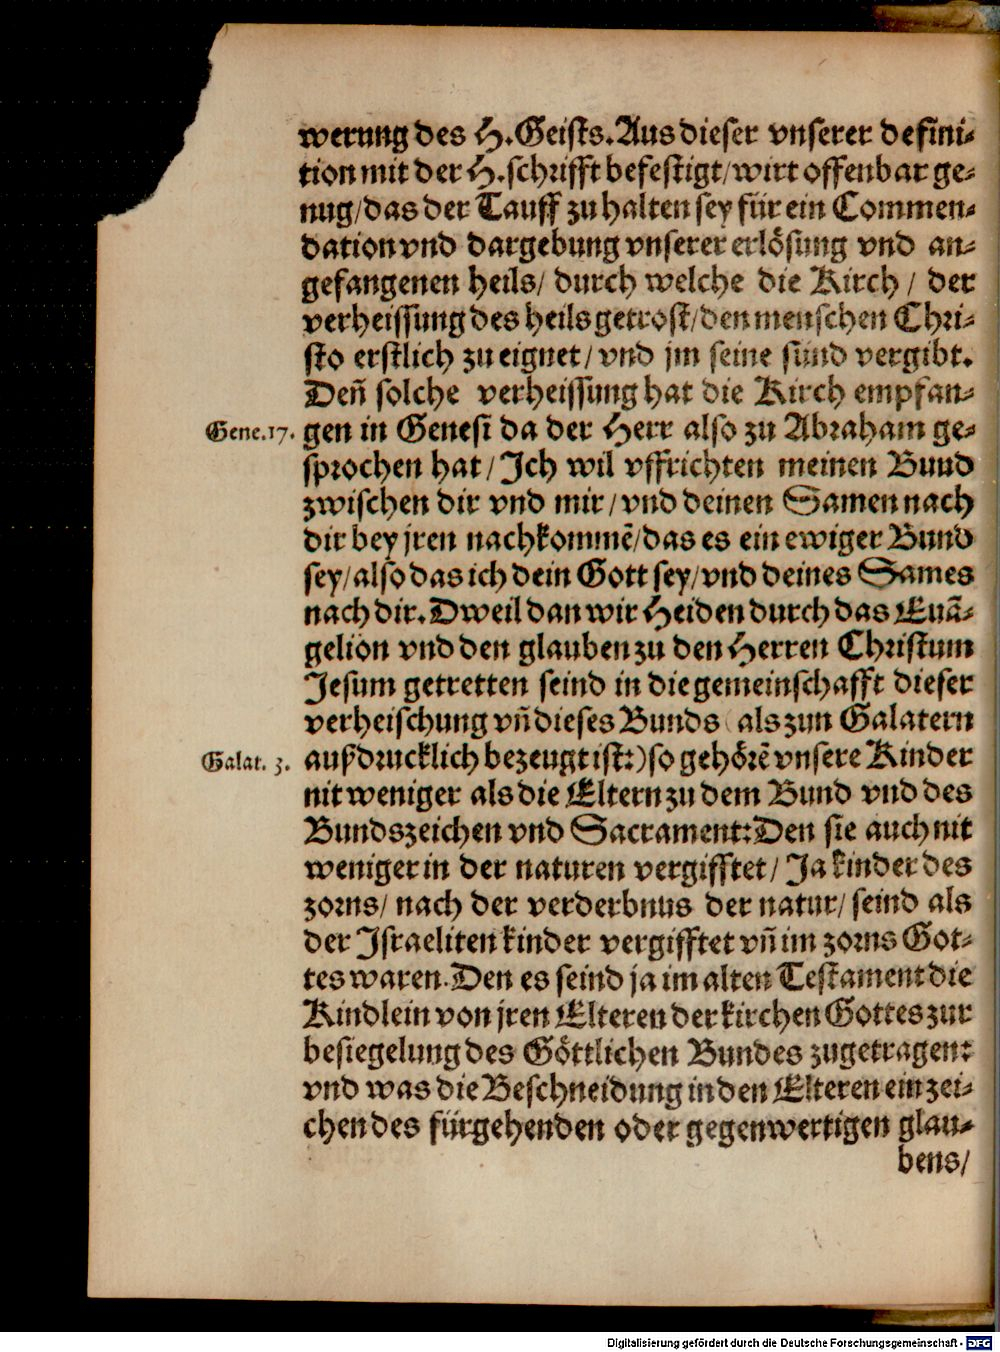 werung des H. Geists. Aus dieser vnserer defini-
tion mit der H. schrifft befestigt/ wirt offenbar ge-
nug/ das der Tauff zu halten sey für ein Commen-
dation vnd dargebung vnserer erlösung vnd an-
gefangenen heils/ durch welche die Kirch/ der
verheissung des heils getrost/ den menschen Chri-
sto erstlich zu eignet/ vnd jm seine sünd vergibt.
Deñ solche verheissung hat die Kirch empfan-
Gene. 17. gen in Genesi da der Herr also zu Abraham ge-
sprochen hat/ Ich wil vffrichten meinen Bund
zwischen dir vnd mir/ vnd deinen Samen nach
dir bey jren nachkommẽ/ das es ein ewiger Bund
sey/ also das ich dein Gott sey/ vnd deines Sames
nach dir. Dweil dan wir Heiden durch das Euã-
gelion vnd den glauben zu den Herren Christum
Jesum getretten seind in die gemeinschafft dieser
verheischung vñ dieses Bunds (als zun Galatern
Galat. 3. außdrucklich bezeugt ist:) so gehörẽ vnsere Kinder
nit weniger als die Eltern zu dem Bund vnd des
Bundszeichen vnd Sacrament: Den sie auch nit
weniger in der naturen vergifftet/ Ja kinder des
zorns/ nach der verderbnus der natur/ seind als
der Israeliten kinder vergifftet vñ im zorns Got-
tes waren. Den es seind ja im alten Testament die
Kindlein von jren Elteren der kirchen Gottes zur
besiegelung des Göttlichen Bundes zugetragen:
vnd was die Beschneidung in den Elteren ein zei-
chen des fürgehenden oder gegenwertigen glau-
bens/
Digitalisierung gefördert durch die Deutsche Forschungsgemeinschaft - DFG